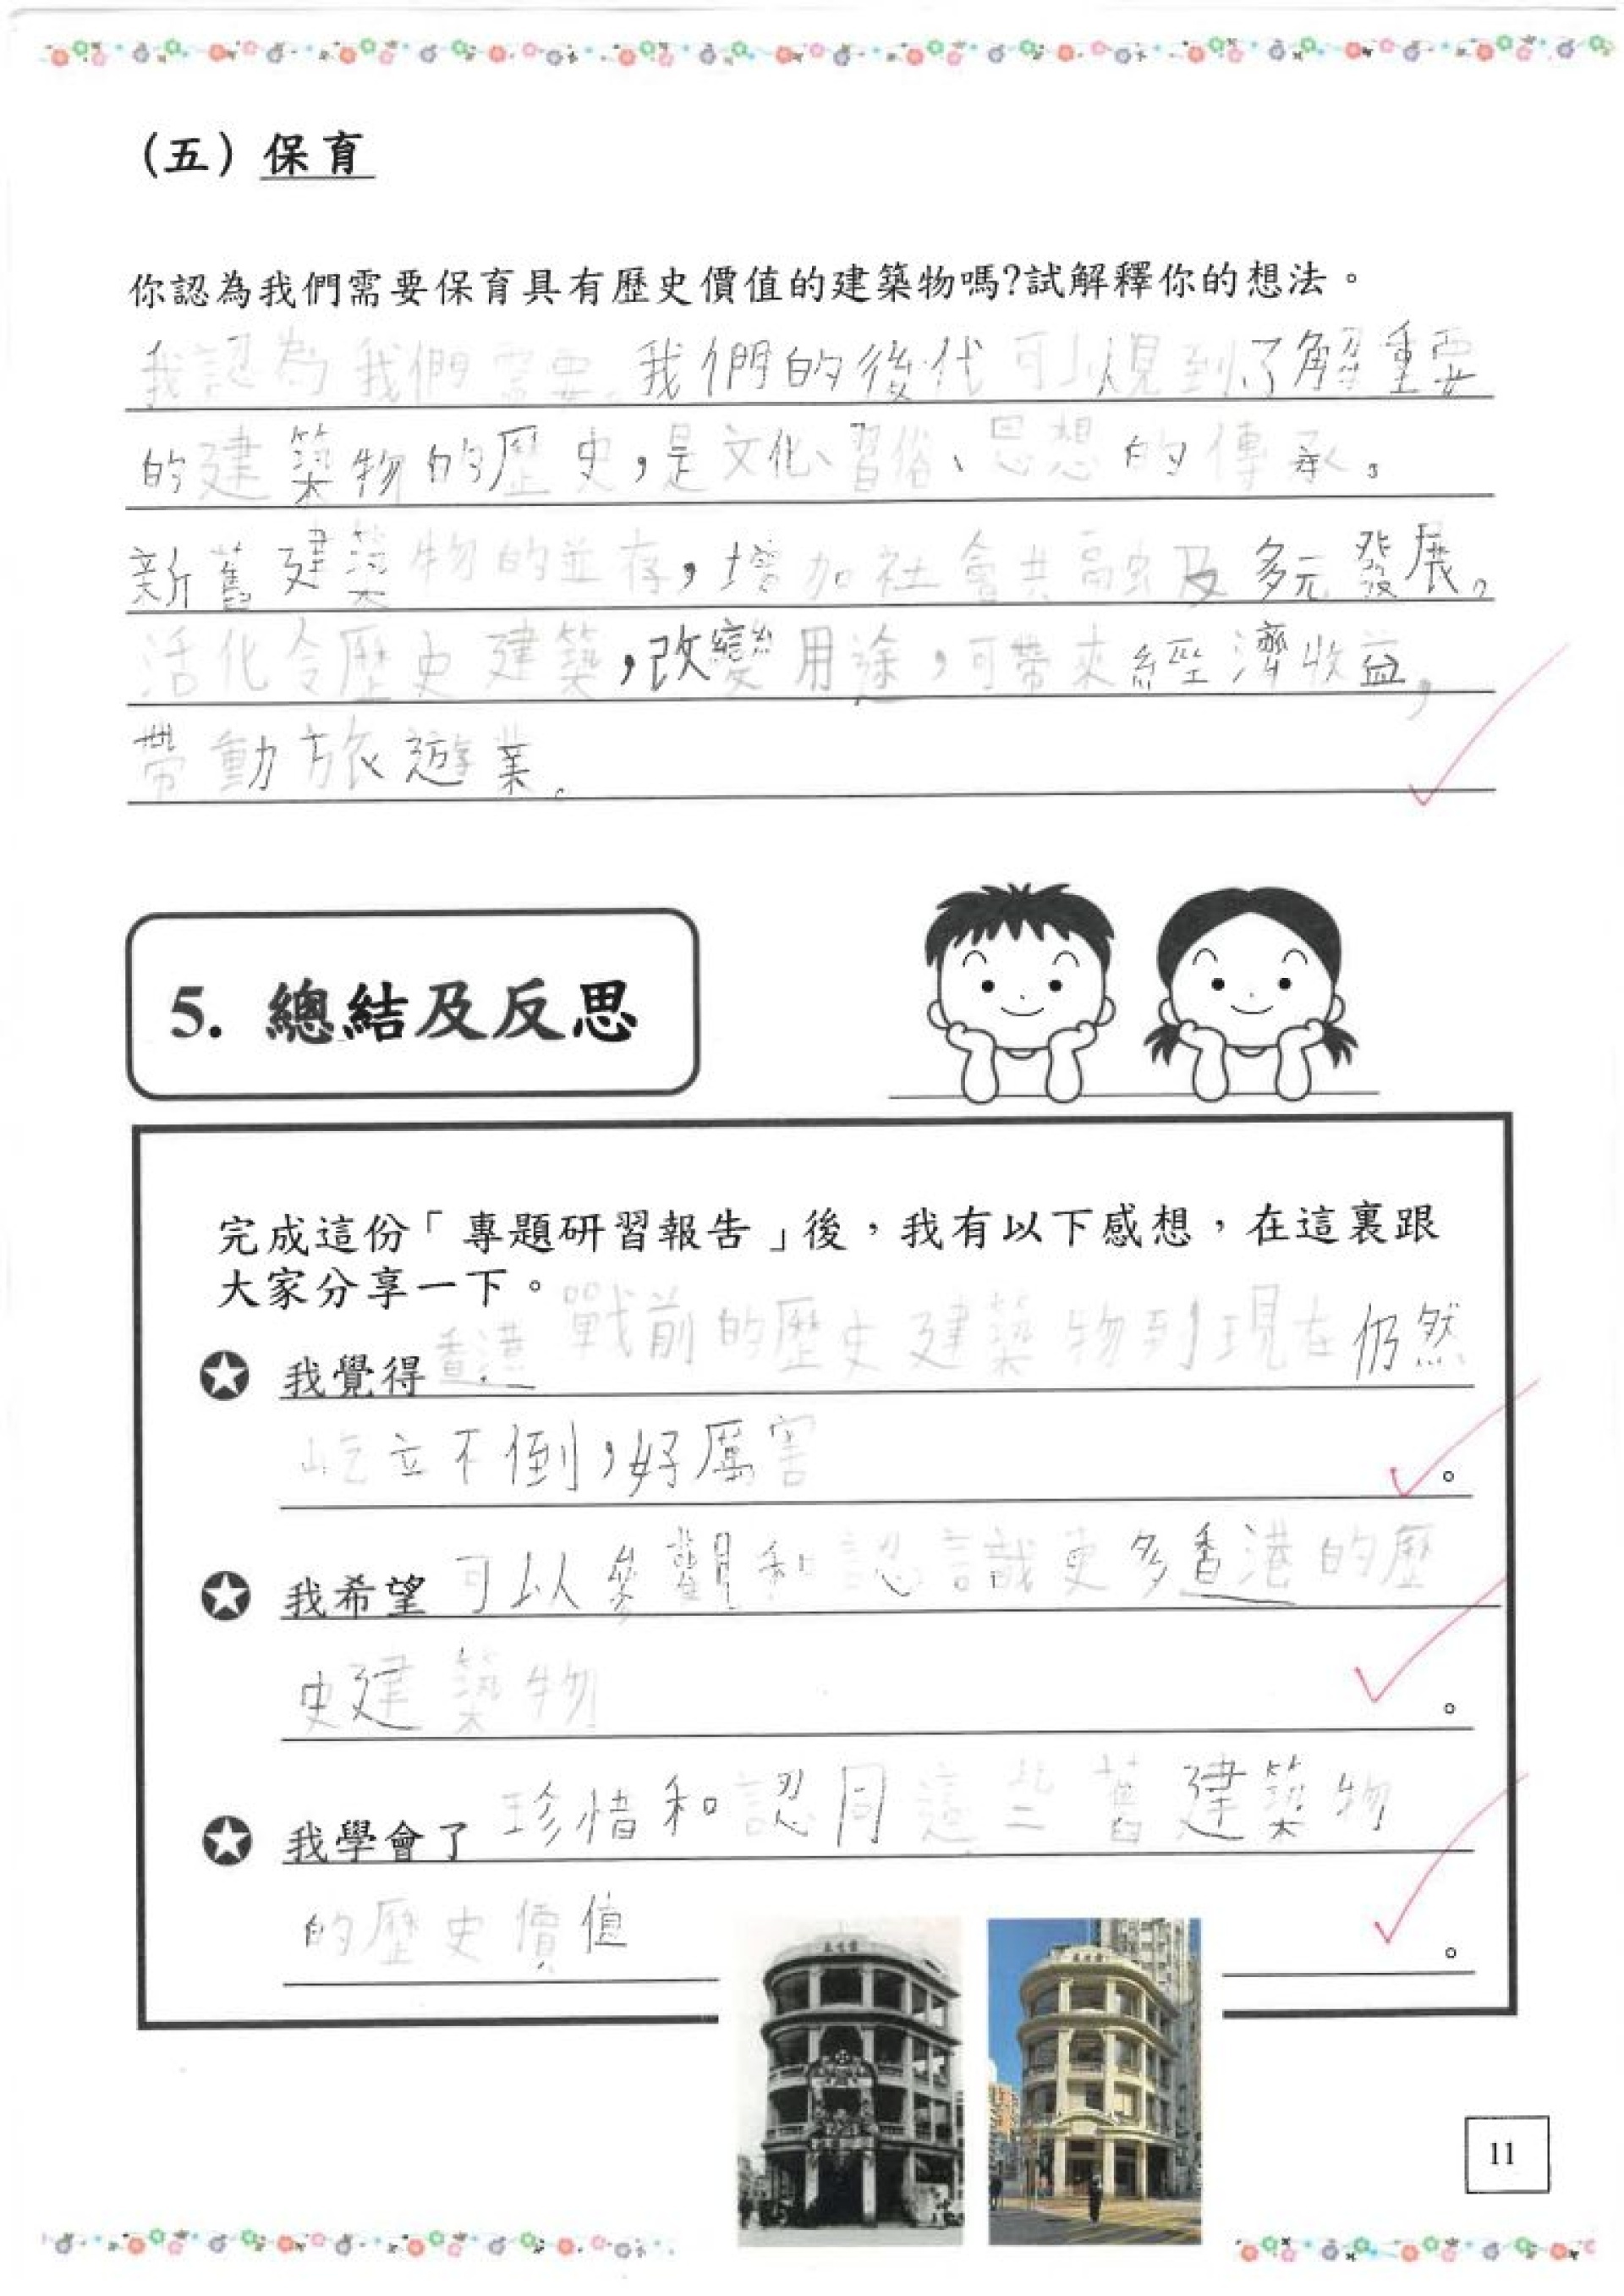 （五）保育
你認為我們需要保育具有歷史價值的建築物嗎?試解釋你的想法。
我認為我們需要。我們的後代可以見到了解重要
的建築物的歷史，是文化、習俗、思想的傳承。
新舊建築物的並存，增加社會共融及多元發展。
活化令歷史建築，改變用途，可帶來經濟收益，
帶動旅遊業。
5. 總結及反思
完成這份「專題研習報告」後，我有以下感想，在這裏跟
大家分享一下。
我覺得香港戰前的歷史建築物到現在仍然
屹立不倒，好厲害。
我希望可以參觀和認識更多香港的歷
史建築物。
我學會了珍惜和認同這些舊建築物
的歷史價值。
11